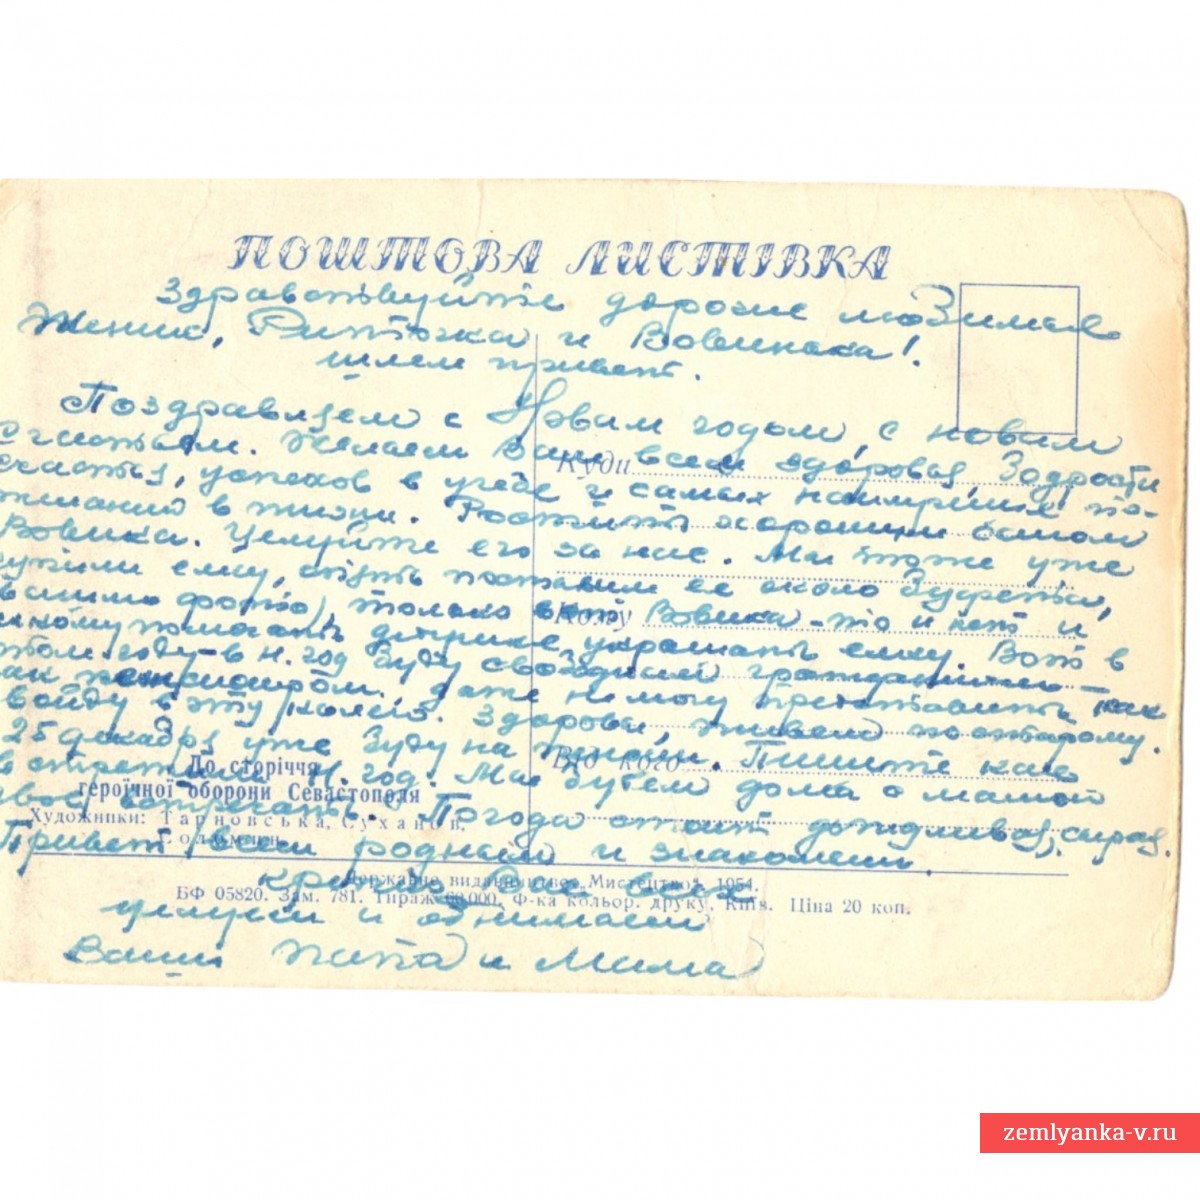 ПОШТОВА ЛИСТІВКА
Здравствуйте дорогие любимые
Женик, Риточка и Вовинька!
шлем привет.
Поздравляем с Новым годом, с новым
счастьем. Желаем Вам всем здоровья бодрости
счастья, успехов в учебе и самых наилучших по-
желаний в жизни. Растите хорошим сыном
Вовика. Целуйте его за нас. Мы тоже уже
купили елку, опять поставим ее около буфета,
вашими фото, только Вовика-то и нет и
некому помогать дедушке украшать елку. Вот в
этом году-в н. год буду свободным гражданином-
как пенсионером. даже не могу представить как
войду в эту колею. Здоровы, живем по старому.
25 декабря уже буду на пенсии. Пишите как
встретили Н. год. Мы будем дома с мамой
двое встречать. Погода стоит дождливая, сырая.
Привет всем родным и знакомым.
крепко вас
целуем и обнимаем
Ваши папа и Мама
Куди
Кому
Від кого
До сторіччя
героїчної оборони Севастополя
Художники: Тарновська, Суханов,
Державне видавництво „Мистецтво“, 1954.
БФ 05820. Зам. 781. Тираж 60.000. Ф-ка кольор. друку. Київ. Ціна 20 коп.
zemlyanka-v.ru